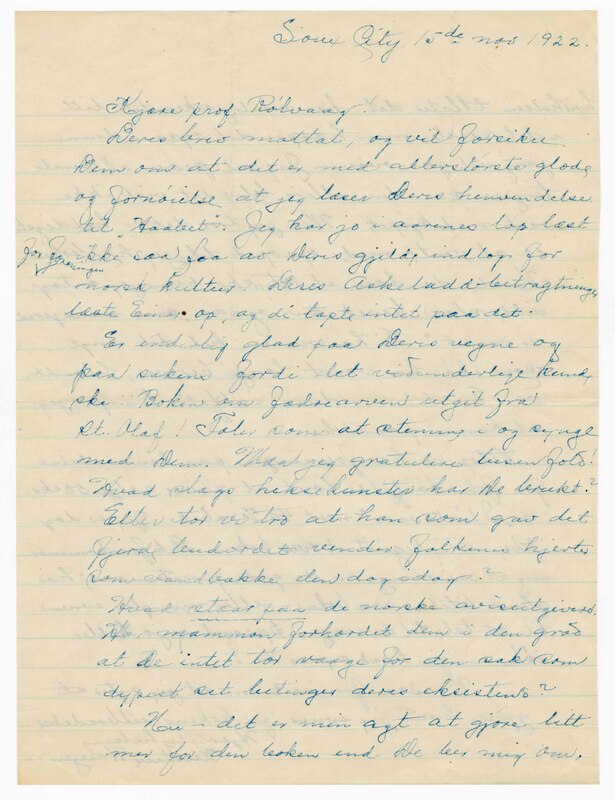 Sioux City 15de nov 1922.
Kjære prof. Rölvaag!
Deres brev mottat, og vil forsikre
Dem om at det er med allerstörste glæde
og fornöielse at jeg læser Deres henvendelse
til "Haabet". Jeg har jo i aarenes löp læst
ikke saa faa av Deres gjilde indlæg for
for foreningen
norsk kultur Deres Askeladd-betragtninger
læste Einar op, og di tapte intet paa det.
Er inderlig glad paa Deres vegne og
paa sakens fordi det vidunderlige kunde
ske: Boken om fædrearven utgit fra
St. Olaf! Föler som at stemme i og synge
med Dem. Maa jeg gratulere tusenfold!
Hvad slags heksekunster har De brukt?
Eller tör vi tro at han som gav det
fjerde budordet vender folkenes hjerter
som vandbække den dag idag?
Hvad staar paa de norske avisutgivere.
Har mammon forhærdet dem i den grad
at de intet tör vaage for den sak som
dypest set betinger deres eksistens?
Nu – det er min agt at gjöre litt
mer for den boken end De ber mig om,